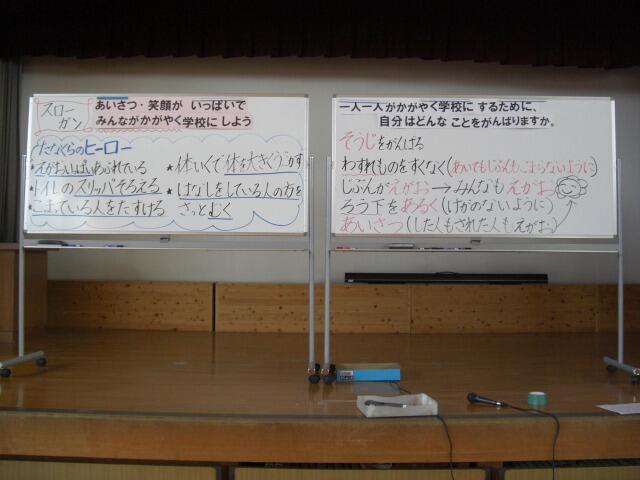 スロー
ガン
あいさつ・笑顔が いっぱいで
みんながかがやく学校に しよう
たなぐらのヒーロー
・えがおいっぱいあふれている
・トイレのスリッパそろえる
・こまっている人をたすける
★体いくで体を大きくうごかす
★はなしをしている人の方を
さっとむく
一人一人がかがやく学校に するために、
自分はどんな ことをがんばりますか。
そうじをがんばる
わすれものをすくなく(あいてもじぶんもこまらないように)
じぶんがえがお→みんなもえがお
ろう下をあるく(けがのないように)
あいさつ(した人もされた人もえがお)